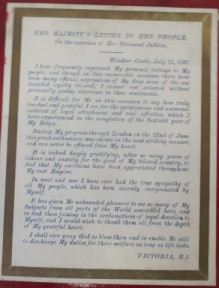 HER MAJESTY'S LETTER TO HER PEOPLE
On the occasion of Her Diamond Jubilee.
Windsor Castle, July 15, 1897.
I have frequently expressed My personal feelings to My
people, and though on this memorable occasion there have
been many official expressions of My deep sense of the un-
bounded loyalty evinced, I cannot rest satisfied without
personally giving utterance to these sentiments.
It is difficult for Me on this occasion to say how truly
touched and grateful I am for the spontaneous and universal
outburst of loyal attachment and real affection which I
have experienced on the completion of the Sixtieth year of
My Reign.
During My progress through London on the 22nd of June
this great enthusiasm was shown in the most striking manner,
and can never be effaced from My heart.
It is indeed deeply gratifying, after so many years of
labour and anxiety for the good of My beloved country, to
find that My exertions have been appreciated throughout
My vast Empire.
In weal and woe I have ever had the true sympathy of
all My people, which has been warmly reciprocated by
Myself.
It has given Me unbounded pleasure to see so many of My
Subjects from all parts of the World assembled here, and
to find them joining in the acclamations of loyal devotion to
Myself, and I would wish to thank them all from the depth
of My grateful heart.
I shall ever pray God to bless them and to enable Me still
to discharge My duties for their welfare as long as life lasts.
VICTORIA, R.I.